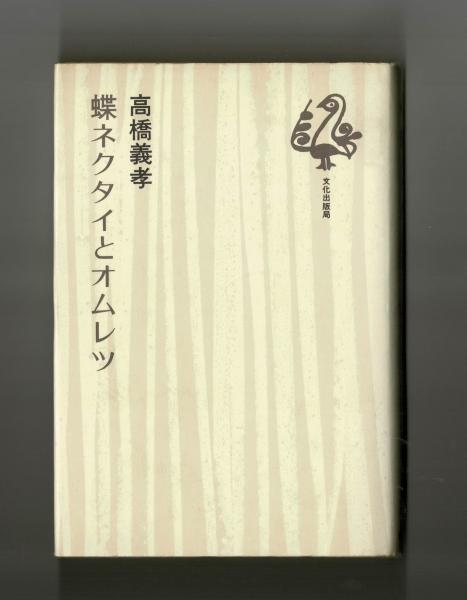 高橋義孝
蝶ネクタイとオムレツ
文化出版局